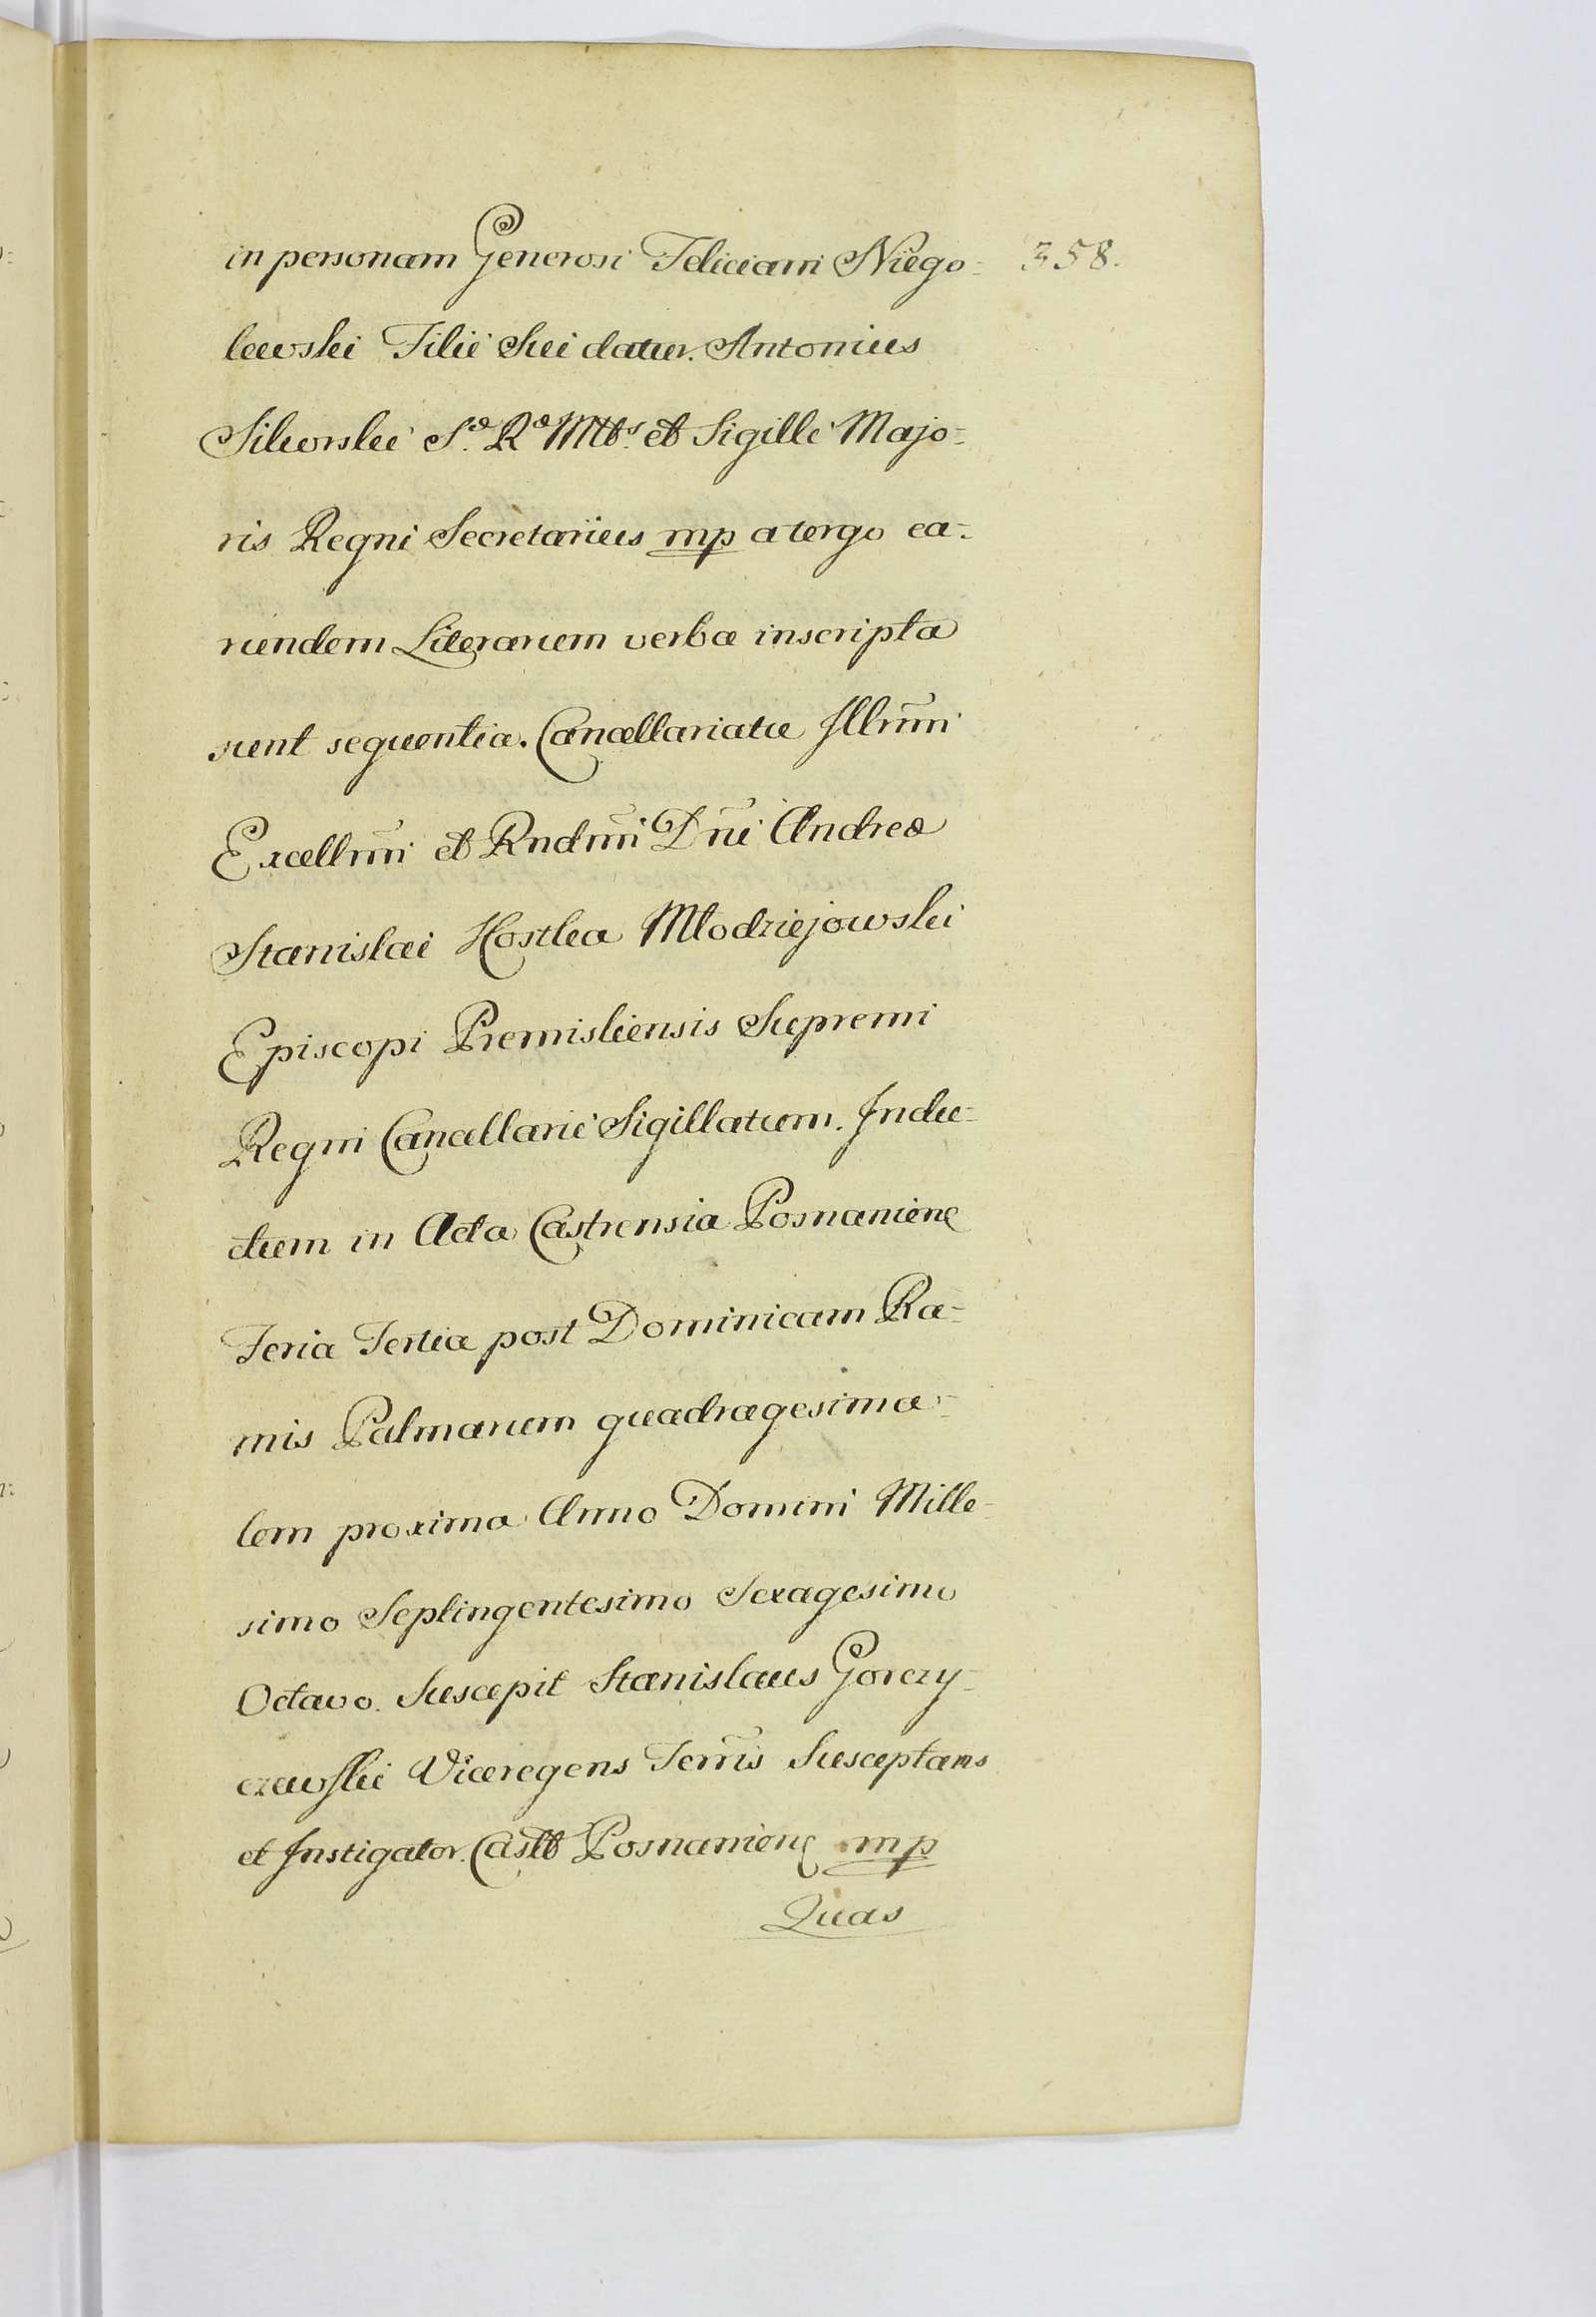 in personam Generosi Feliciani Niego- 358.
lewski Filii Sui datur. Antonius
Sikorski S.ᵃ Rᵃ Mttˢ. et Sigilli Majo-
ris Regni Secretarius mp a tergo ea-
rundem Literarum verba inscripta
sunt sequentia. Cancellariatu Illrmi
Excellrmi et Rndmi Dni Andreæ
Stanislai Kostka Młodziejowski
Episcopi Premisliensis Supremi
Regni Cancellarii Sigillatum. Indu-
ctum in Acta Castrensia Posnanienc
Feria Tertia post Dominicam Ra-
mis Palmarum quadragesima-
lem proxima Anno Domini Mille-
simo Septingentesimo Sexagesimo
Octavo. Suscepit Stanislaus Gorczy-
czewski Viceregens Terris Susceptans
et Instigator. Castt Posnanienc mp
Quas